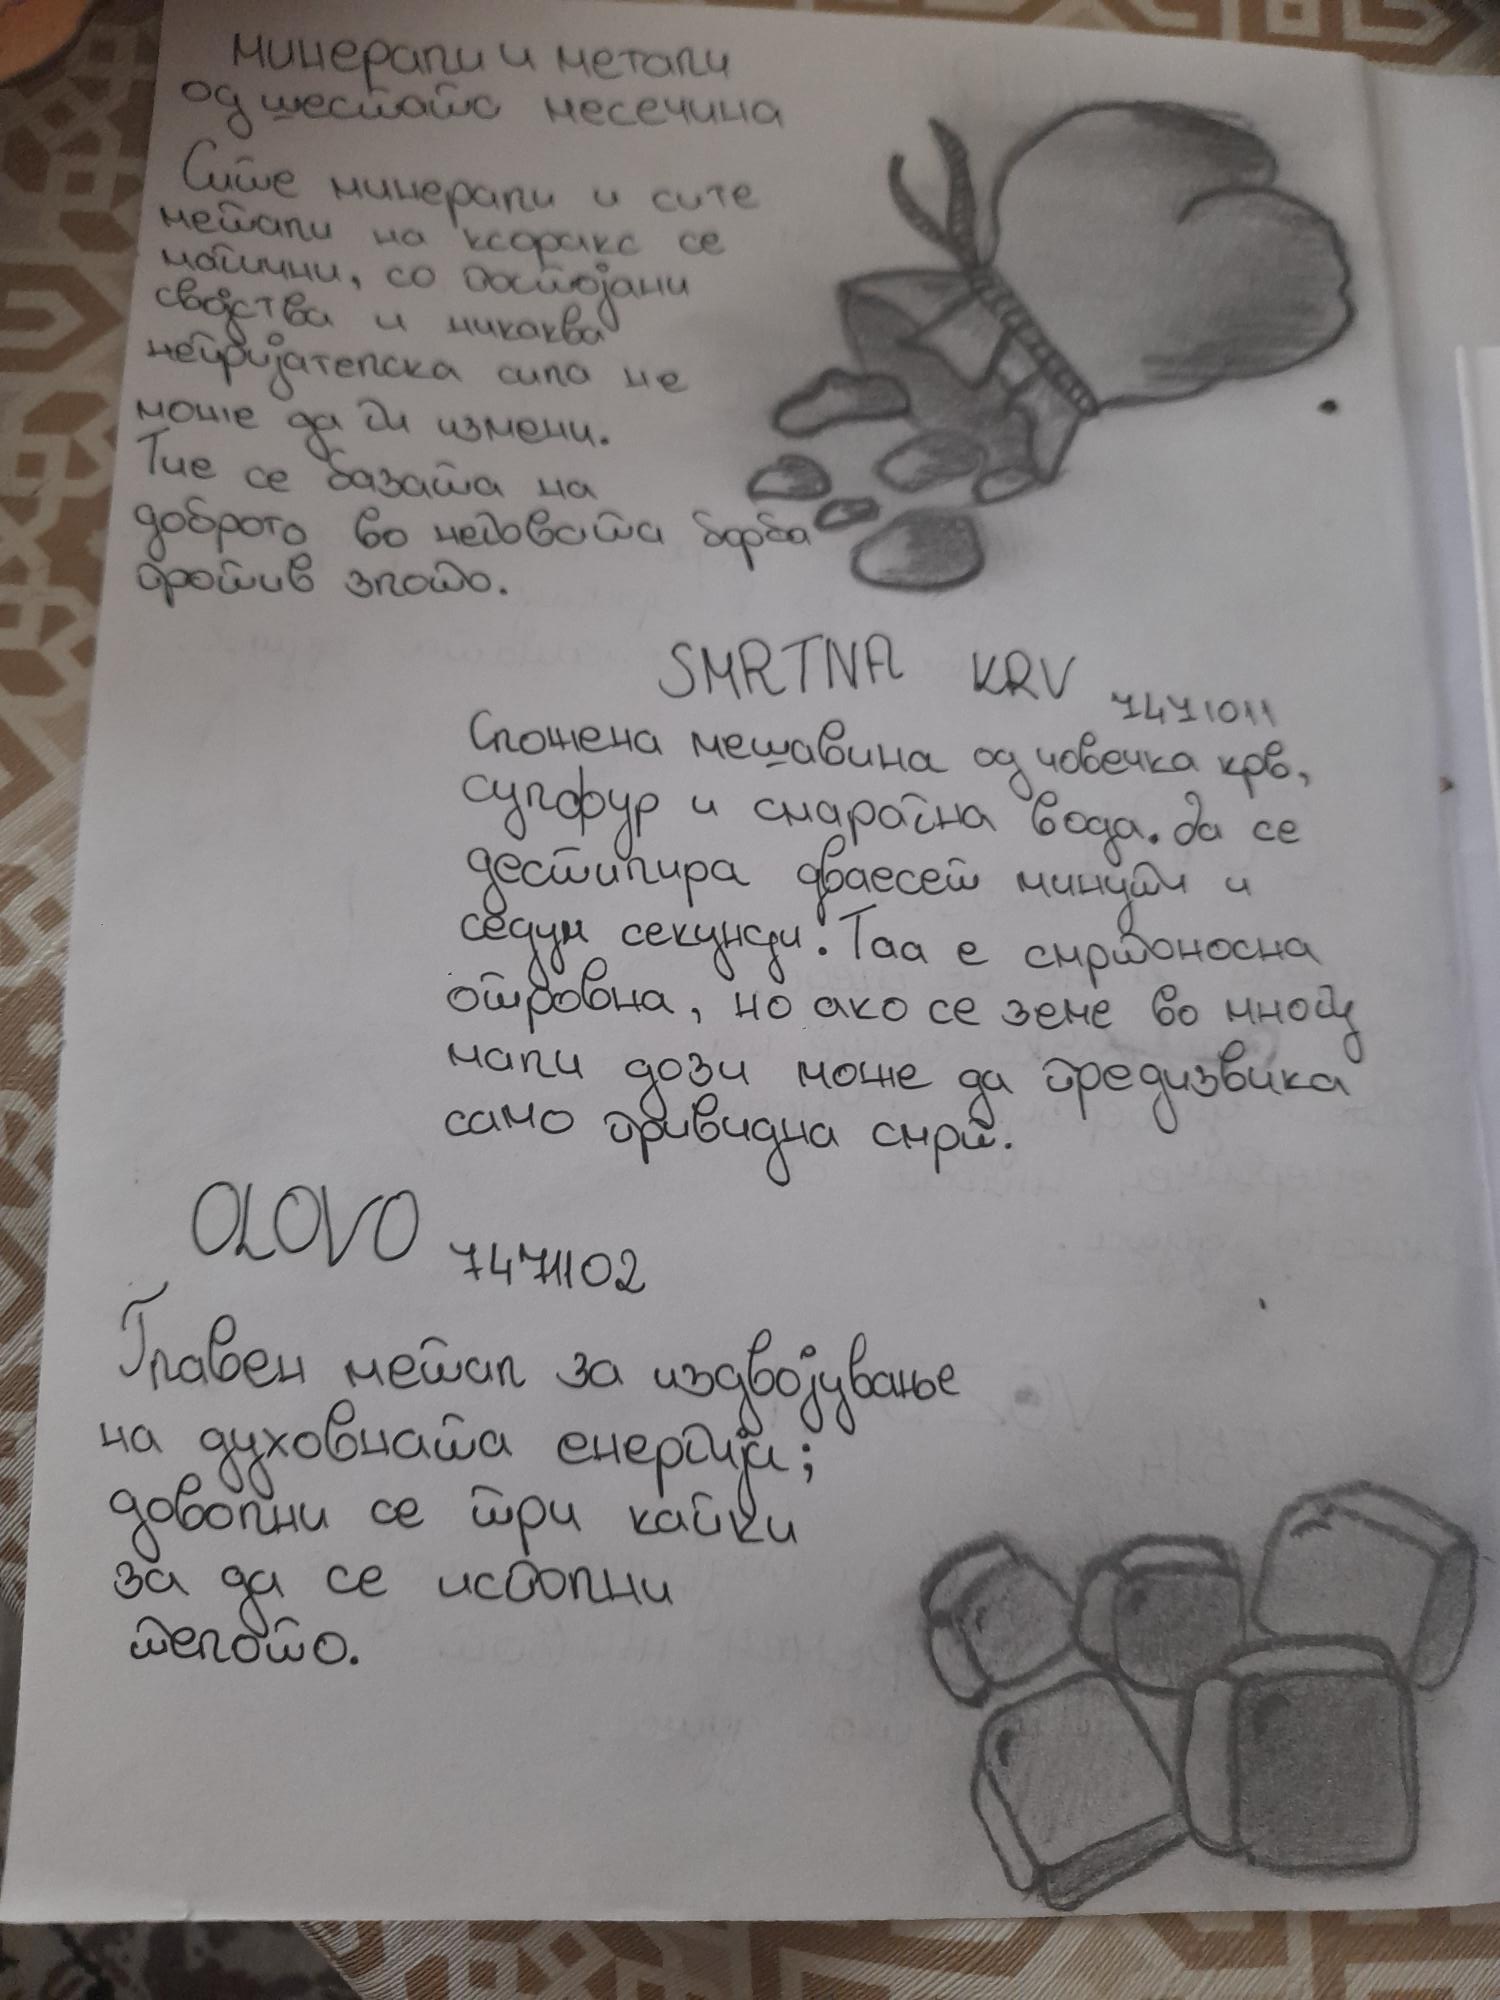 минерали и метали
од шестата месечина
Сите минерали и сите
метали на ксоракс се
моќни, со постојани
својства и никаква
непријателска сила не
може да ги измени.
Тие се базата на
доброто во неговата борба
против злото.
SMRTNA KRV
7471011
Сложена мешавина од човечка крв,
сулфур и смарагна вода. Да се
дестилира дваесет минути и
седум секунди. Таа е смртоносна
отровна, но ако се земе во многу
мали дози може да предизвика
само привидна смрт.
OLOVO
7471102
Главен метал за издвојување
на духовната енергија;
доволни се три капки
за да се исполни
телото.